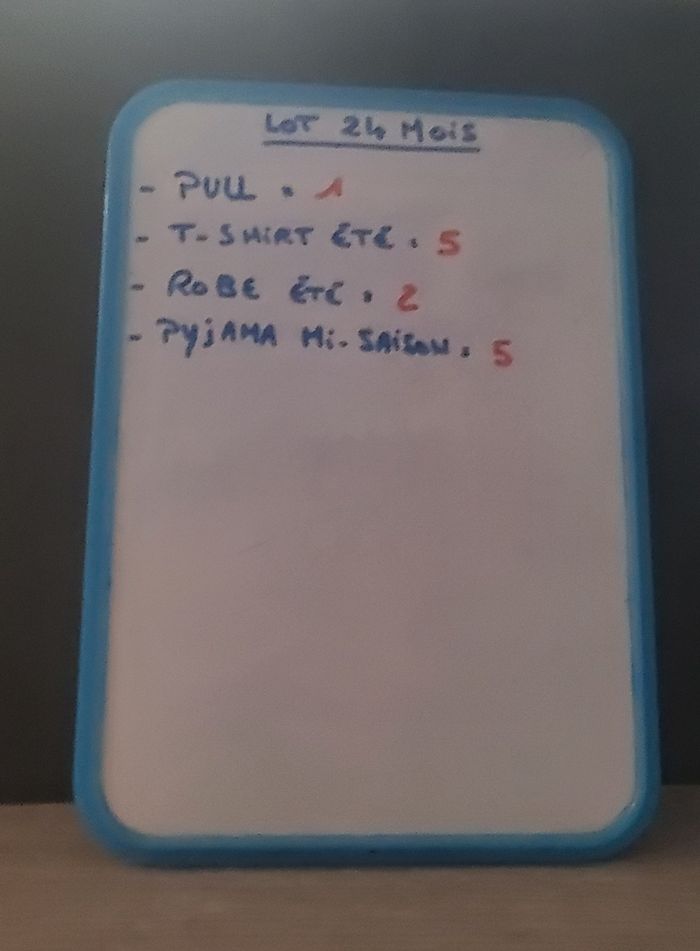 LOT 24 MOiS
- PULL : 1
- T-SHiRT ÉTÉ : 5
- ROBE ÉTÉ : 2
- PyjAMA Mi-SAiSON : 5